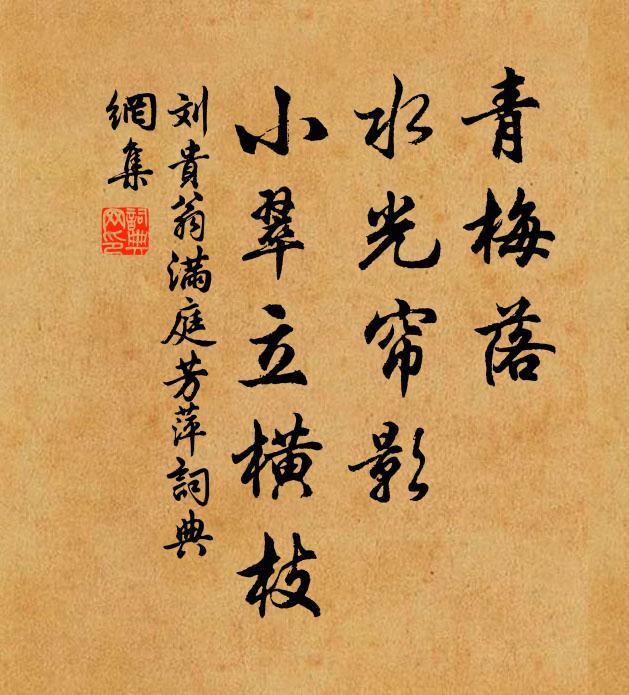 青梅落
水光帘影
小翠立横枝
刘貴翁满庭芳萍詞典
網集
詞典
网印